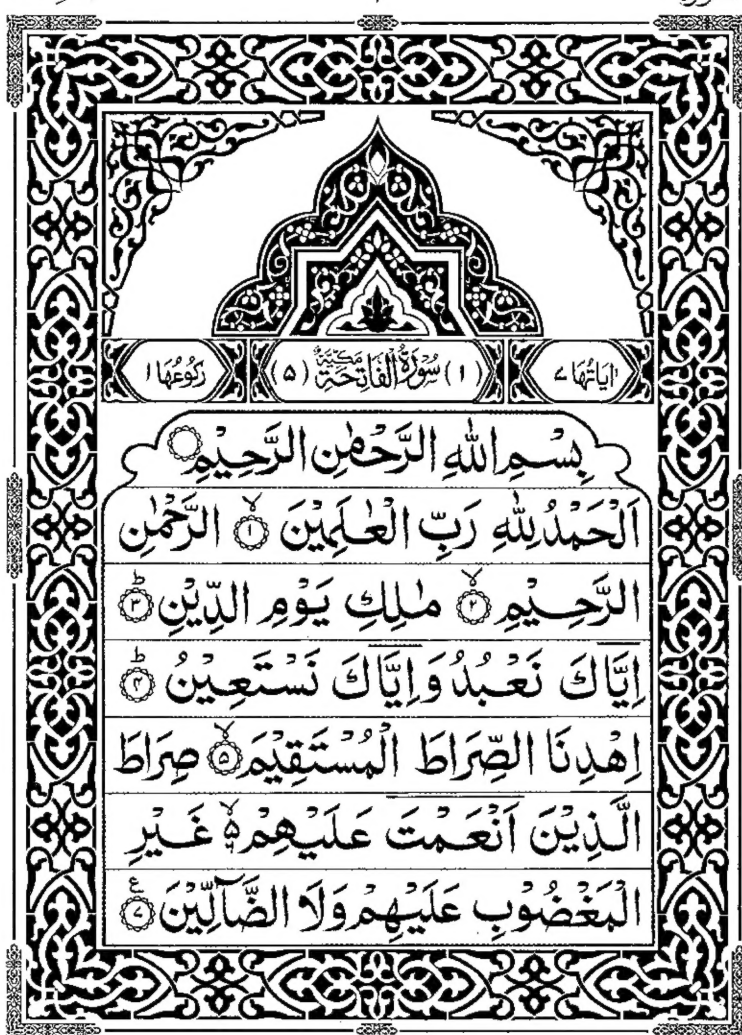 اٰيَاتُهَا ٧ (١) سُوْرَةُ الْفَاتِحَةِ مَكِّيَّةٌ (٥) رُكُوْعُهَا ١
بِسْمِ اللّٰهِ الرَّحْمٰنِ الرَّحِيْمِ
اَلْحَمْدُ لِلّٰهِ رَبِّ الْعٰلَمِيْنَ ۙ﴿١﴾ الرَّحْمٰنِ
الرَّحِيْمِ ۙ﴿٢﴾ مٰلِكِ يَوْمِ الدِّيْنِ ؕ﴿٣﴾
اِيَّاكَ نَعْبُدُ وَاِيَّاكَ نَسْتَعِيْنُ ؕ﴿۴﴾
اِهْدِنَا الصِّرَاطَ الْمُسْتَقِيْمَ ۙ﴿۵﴾ صِرَاطَ
الَّذِيْنَ اَنْعَمْتَ عَلَيْهِمْ ۙ۬ۦ غَيْرِ
الْمَغْضُوْبِ عَلَيْهِمْ وَلَا الضَّآلِّيْنَ ﴿٧﴾ ع